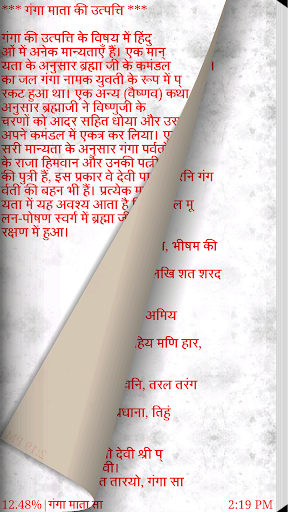 *** गंगा माता की उत्पत्ति ***
गंगा की उत्पत्ति के विषय में हिंदु
ओं में अनेक मान्यताएँ हैं। एक मान्
यता के अनुसार ब्रह्मा जी के कमंडल ।
का जल गंगा नामक युवती के रूप में प्
रकट हुआ था। एक अन्य (वैष्णव) कथा
अनुसार ब्रह्माजी ने विष्णुजी के
चरणों को आदर सहित धोया और उस
अपने कमंडल में एकत्र कर लिया।
सरी मान्यता के अनुसार गंगा पर्वतो
के राजा हिमवान और उनकी पत्नी
की पुत्री हैं, इस प्रकार वे देवी पा रनि गंग
र्वती की बहन भी हैं। प्रत्येक
यता में यह अवश्य आता है ल मू
लन-पोषण स्वर्ग में ब्रह्मा जी
रक्षण में हुआ।
, भीषम की
लखि शत शरद
अमिय
हिय मणि हार,
नि, तरल तरंग
धाना, तिहुं
ो देवी श्री प्
वी।
त तारयो, गंगा सा
12.48% | गंगा माता सा 2:19 PM